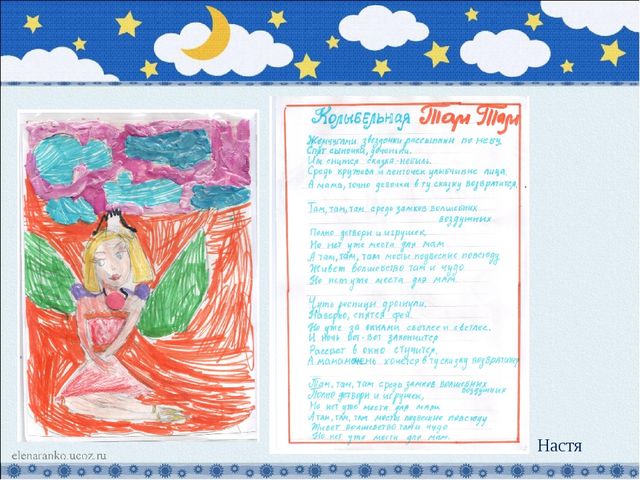 Колыбельная Там Там
Жемчугами звездочки рассыпан по небу
Спят сыночки, доченьки.
Им снится сказка-небыль.
Средь кружева и ленточек улыбчивые лица.
А мама, точно девочка в ту сказку возвратится.
Там, там, там средь замков волшебных
воздушных
Полно детвори и игрушек,
Но нет уже места для мам.
А там, там, там мосты подвесные повсюду
Живет волшебство там и чудо
Но нет уже места для мам.
Чуть ресницы дрогнули,
Наверно, снятся феи.
Но уже за окнами светлее и светлее.
И ночь вот-вот закончится
Рассвет в окно стучится,
А мамам очень хочется в ту сказку возвратится
Там, там, там средь замков волшебных
воздушных
Полно детвори и игрушек,
Но нет уже места для мам.
А там, там, там мосты подвесные повсюду
Живет волшебство там и чудо
Но нет уже места для мам.
Настя
elenaranko.ucoz.ru